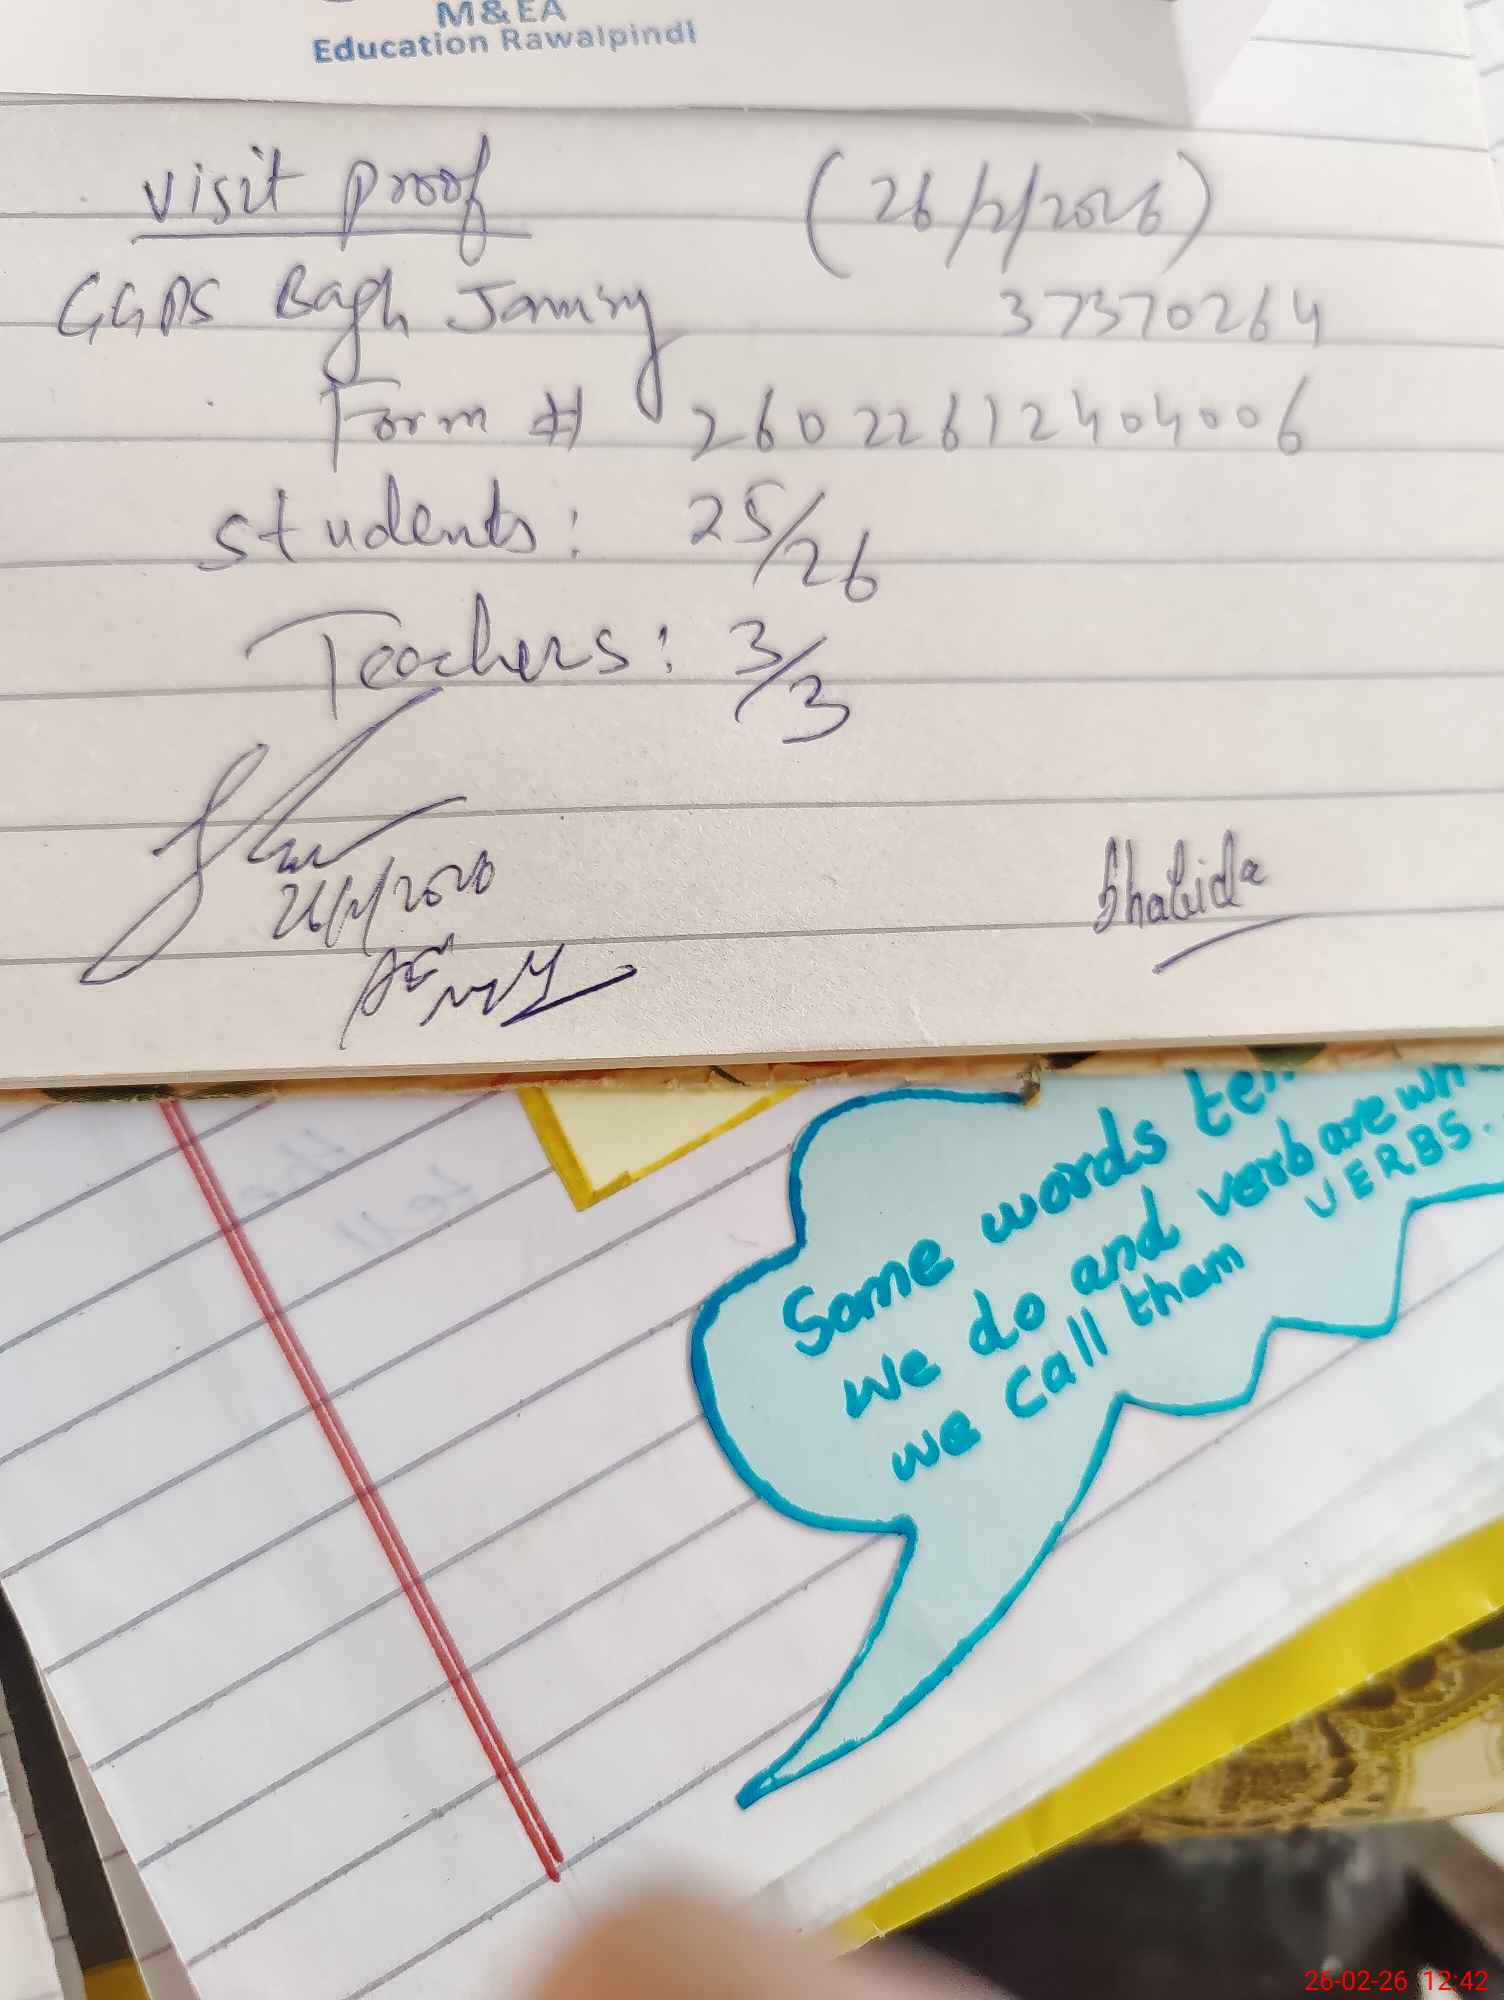 M&EA
Education Rawalpindi
visit proof (26/2/2026)
GGPS Bagh Jamiry 37370264
Form # 26022612404006
students: 25/26
Teachers: 3/3
Shahida
Some words tell
we do and verb are wh
we call them VERBS.
26-02-26 12:42